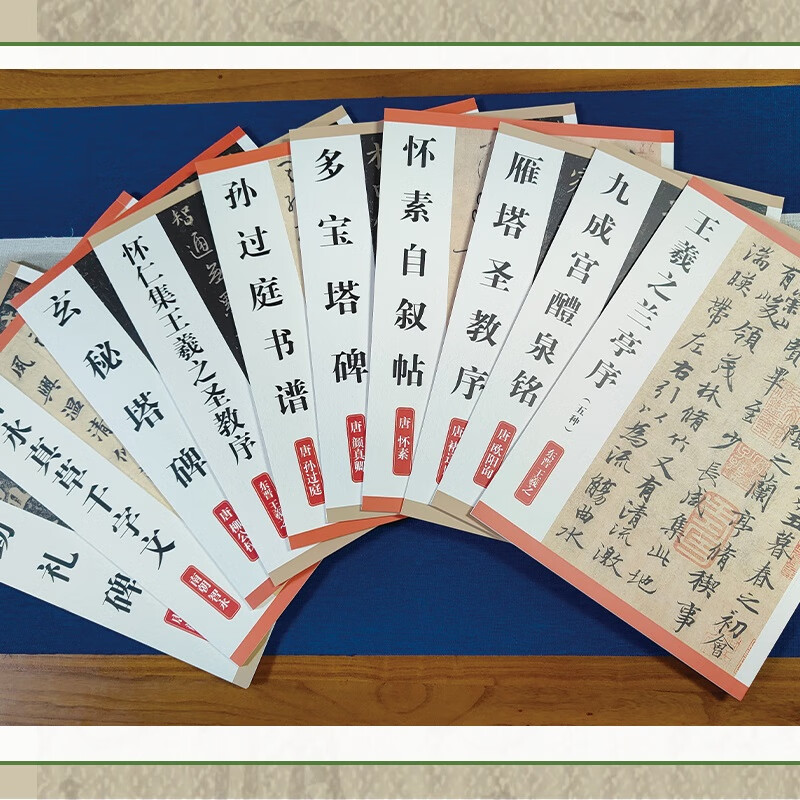 王羲之兰亭序
（五种）
东晋 王羲之
九成宫醴泉铭
唐 欧阳询
雁塔圣教序
唐
怀素自叙帖
唐 怀素
多宝塔碑
唐 颜真卿
孙过庭书谱
唐 孙过庭
怀仁集王羲之圣教序
东晋 王羲之
玄秘塔碑
唐 柳公权
永真草千字文
南朝 智永
礼碑
湍暎帶左右引以為流觴曲水
領茂林脩竹又有清流激
畢至少長咸集此地
之蘭亭脩稧事
暮春之初會
智通無累
風興溫清